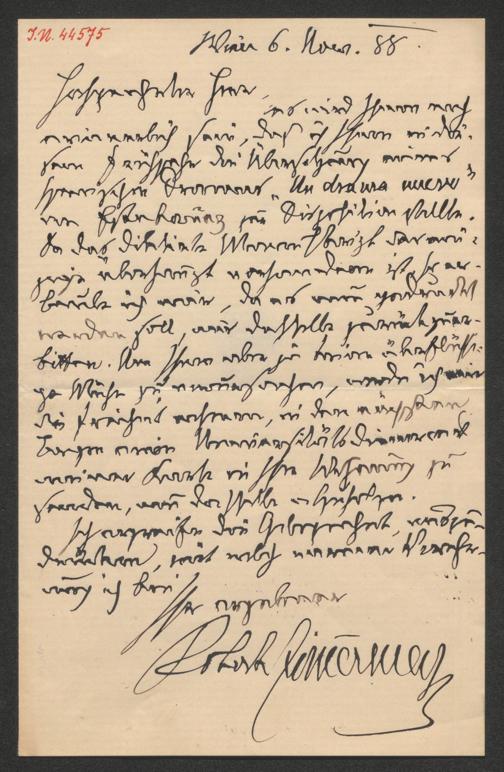 I.N. 44575
Wien 6. Nov. 88.
Hochgeehrter Herr
es wird Ihnen noch
erinnerlich sein, daß ich Ihnen in die-
sem Frühjahr die Übersetzung meines
spanischen Dramas "Un drama nuevo"
von Estebanez zur Disposition stellte.
Da das
überhaupt vorhanden ist, so er-
laube ich mir, da es nun gedruckt
werden soll, mir dasselbe zurückzuer-
bitten. Um Ihnen aber ja keine überflüssi-
ge Mühe zu verursachen, werde ich mir
die Freiheit nehmen, in den nächsten
Tagen einen Universitätsdiener mit
meiner Karte in Ihre Wohnung zu
senden, um dasselbe abzuholen.
Ich ergreife die Gelegenheit, auszu-
drücken, mit welch Verehr-
ung ich bin
Ihr ergebener
Robert Zimermann